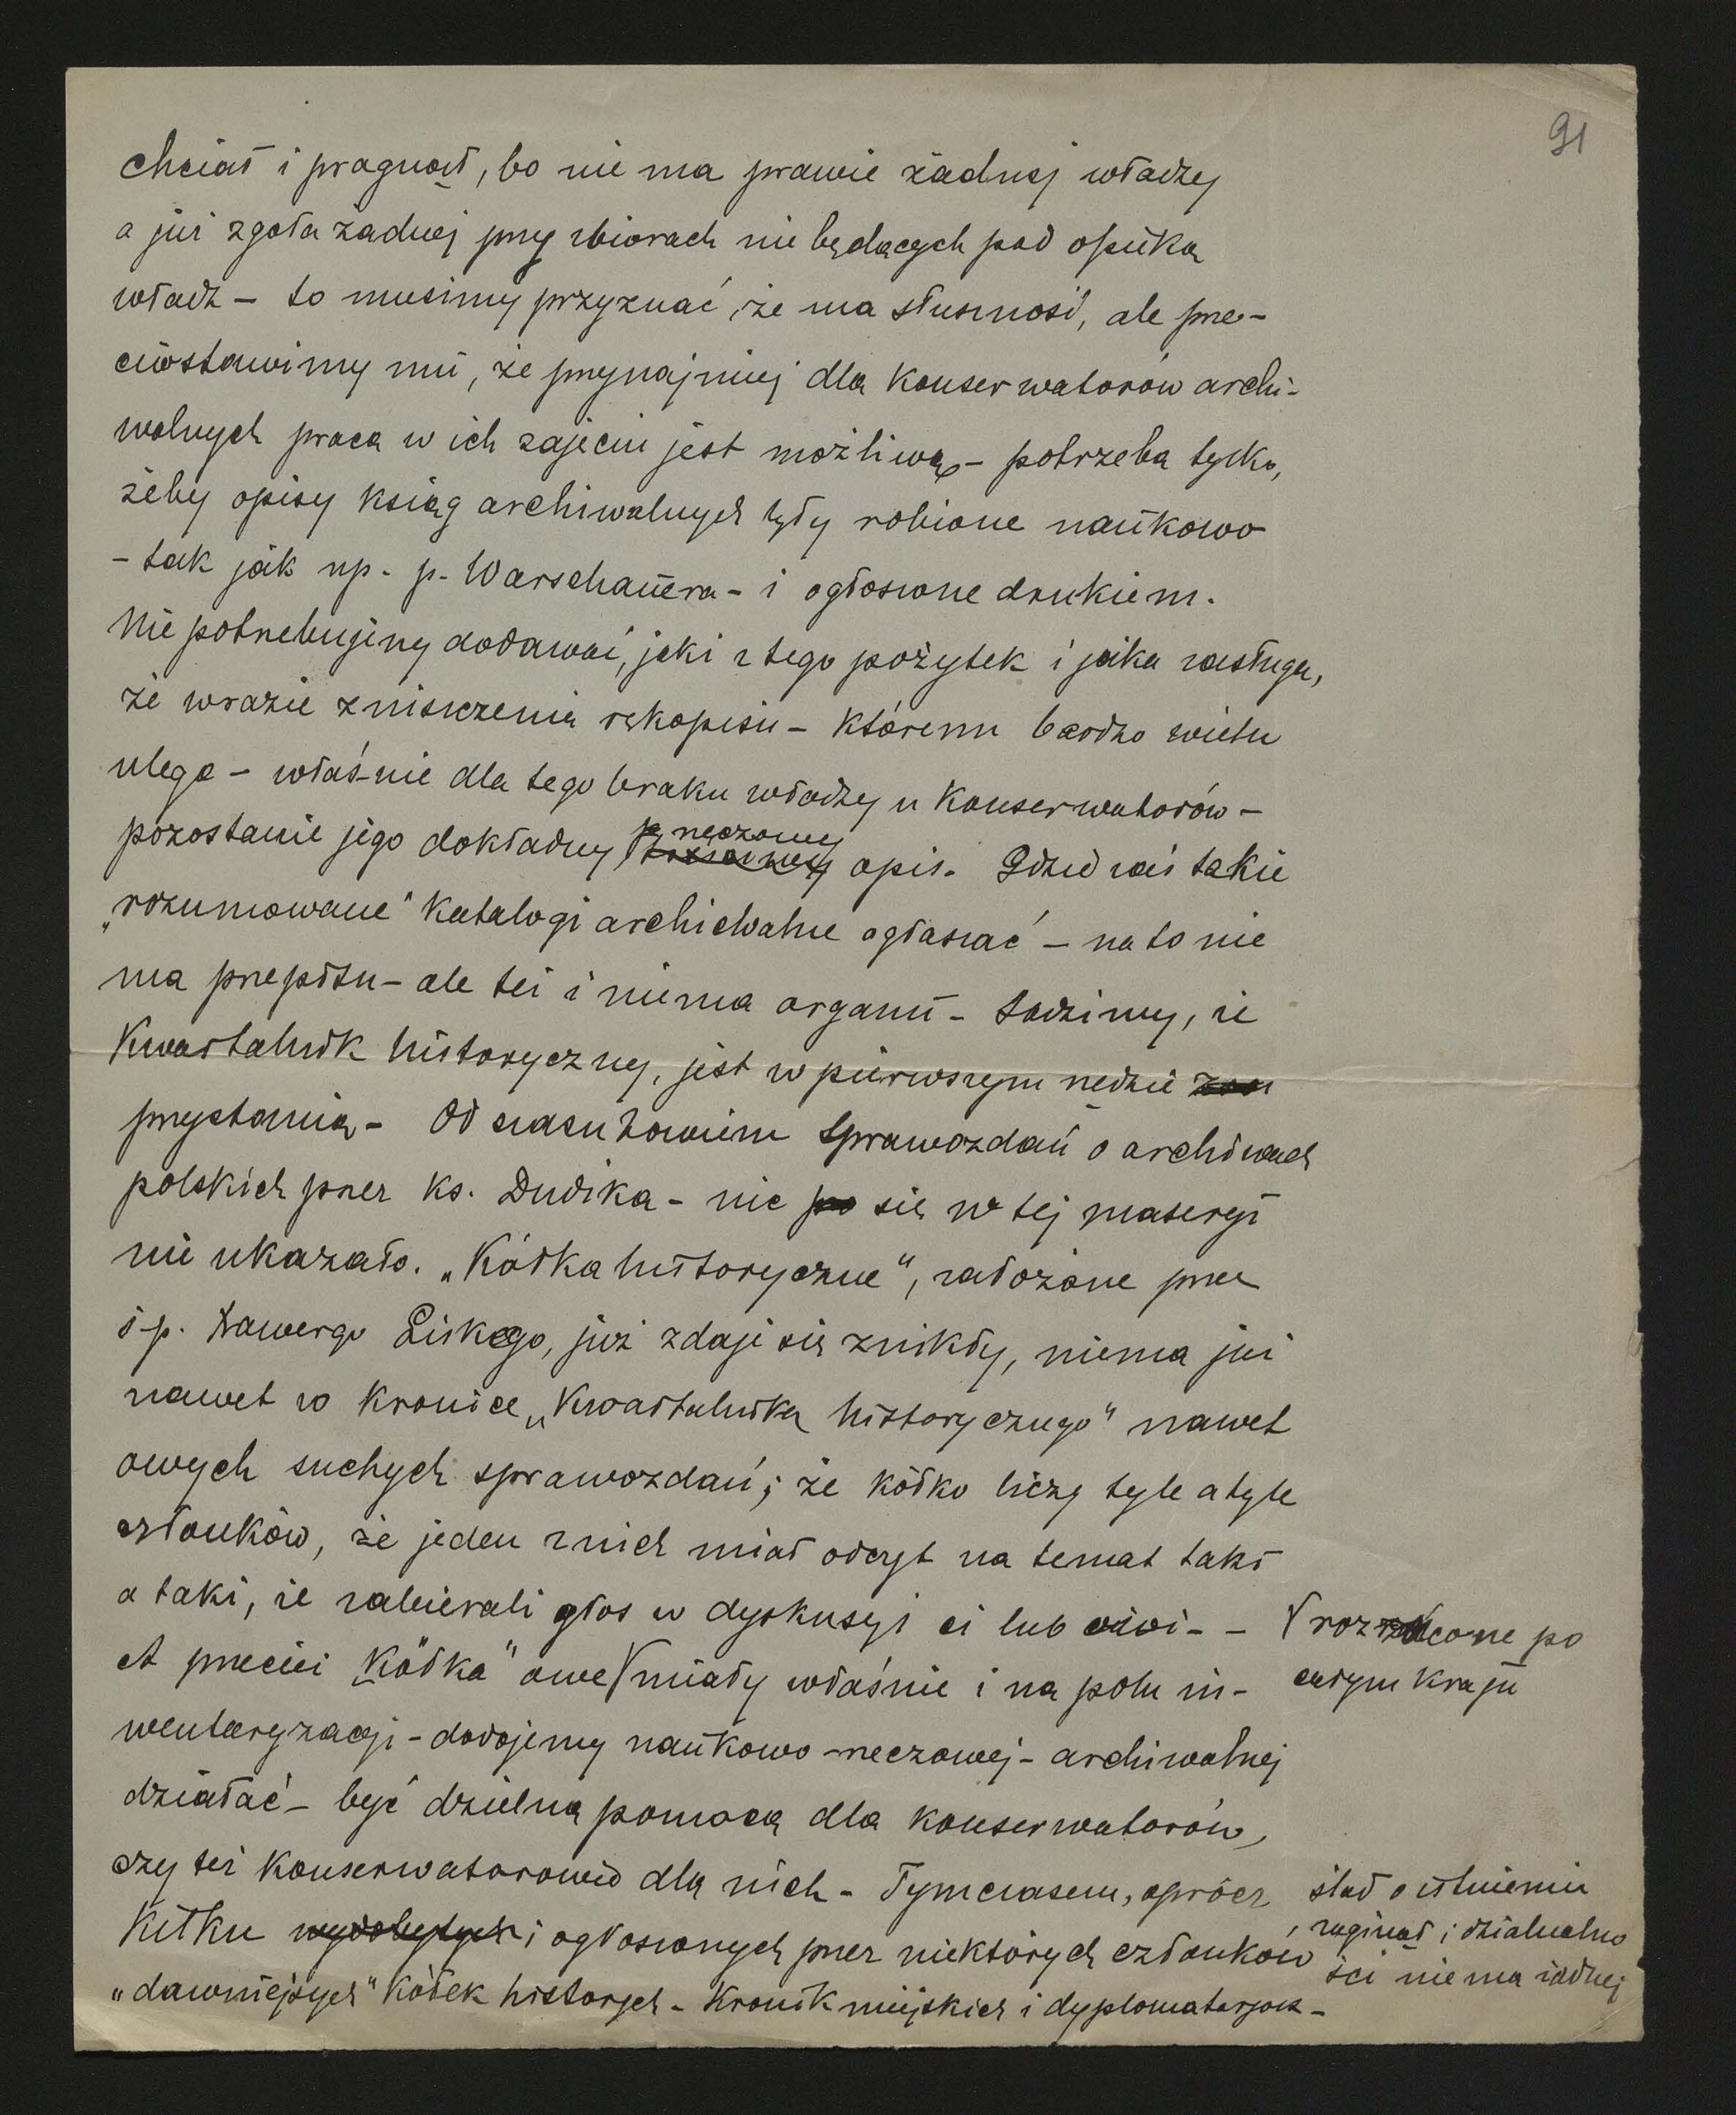 91
chciał i pragnął, bo nie ma prawie żadnej władzy
a już zgoła żadnej przy zbiorach nie będących pod opieką
władz – to musimy przyznać, że ma słuszność, ale prze-
ciwstawimy mu, że przynajmniej dla konserwatorów archi-
walnych praca w ich zajęciu jest możliwą – potrzeba tylko,
żeby opisy ksiąg archiwalnych były robione naukowo
– tak jak np. p. Warschauera – i ogłoszone drukiem.
Nie potrzebujemy dodawać, jaki z tego pożytek i jaka zasługa,
że wrazie zniszczenia rękopisu – któremu bardzo wielu
ulega – właśnie dla tego braku władzy u konserwatorów –
pozostanie jego dokładny rzeczowy opis. Gdzież zaś takie
„rozumowane" katalogi archiwalne ogłaszać – na to nie
ma przepisu – ale też i niema organu – Sądzimy, że
Kwartalnik historyczny, jest w pierwszym rzędzie
przystanią – Od czasu bowiem sprawozdań o archiwach
polskich przez ks. Dudika – nic po się w tej materyi
nie ukazało. „Kółka historyczne", założone przez
ś.p. Xawerego Liskego, już zdaje się znikły, niema już
nawet w kronice „Kwartalnika historycznego" nawet
owych suchych sprawozdań; że kółko liczy tyle a tyle
członków, że jeden z nich miał odczyt na temat taki
a taki, że zabierali głos w dyskusyi ci lub owi – –
A przecież „Kółka" owe √ miały właśnie i na polu in-
√ rozrzucone po
całym kraju
wentaryzacji – dodajemy naukowo-rzeczowej – archiwalnej
działać – być dzielną pomocą dla konserwatorów,
czy też konserwatorowie dla nich – Tymczasem, oprócz
kilku wydobytych i ogłoszonych przez niektórych członków
„dawniejszych" kółek historycz. – Kronik miejskich i dyplomatarjusz –
ślad o istnieniu
zaginął i działalno
ści nie ma żadnej